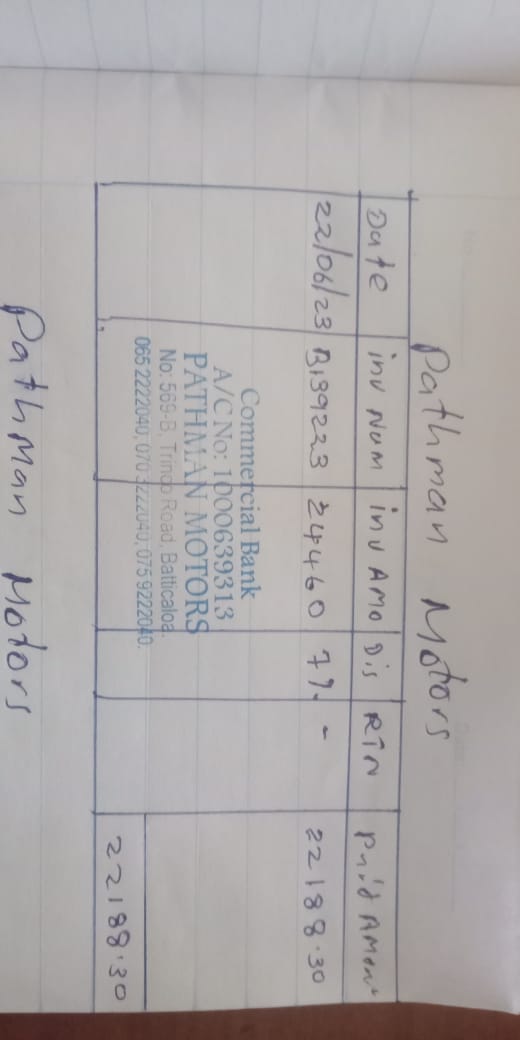 Pathman Motors
Date inv Num inv Amo Dis RTN Paid Amont
22/06/23 B139223 24460 7%. - 22188.30
Commercial Bank
A/C No: 1000639313
PATHMAN MOTORS
No: 569-B, Trinco Road, Batticaloa.
065 2222040, 070 3222040, 075 9222040.
22188.30
Pathman Motors